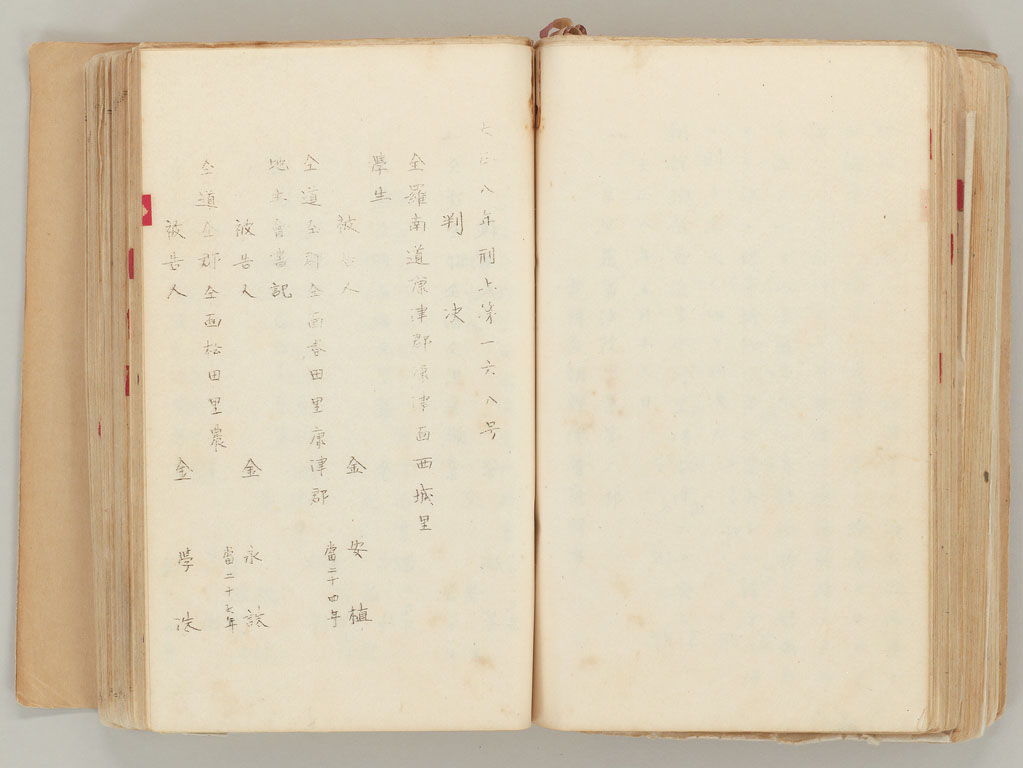 大正八年刑上第一六八号
判決
全羅南道康津郡康津面西城里
學生
被告人 金安植
當二十四年
仝道仝郡仝面春田里康津郡
地主會書記
被告人 金永
當二十七年
仝道仝郡仝面松田里農
被告人 金學